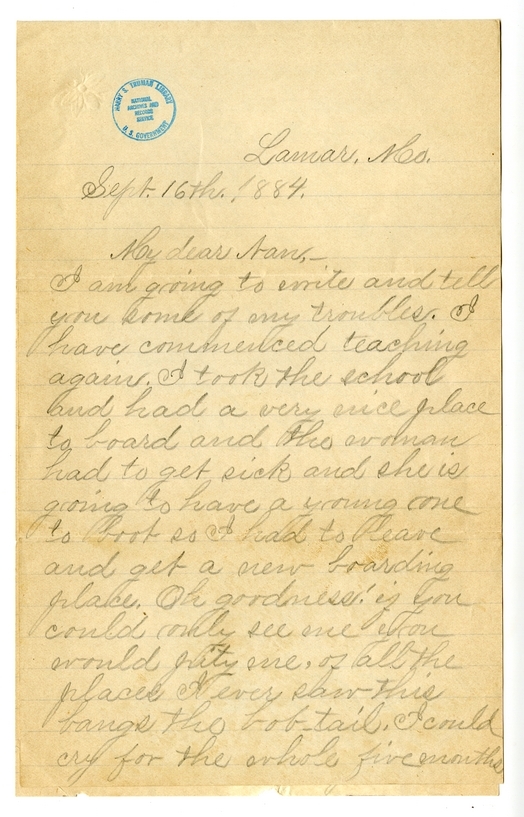 HARRY S. TRUMAN LIBRARY
NATIONAL
ARCHIVES AND
RECORDS
SERVICE
U. S. GOVERNMENT
Lamar, Mo.
Sept. 16th. 1884.
My dear Nan,-
I am going to write and tell
you some of my troubles. I
have commenced teaching
again. I took the school
and had a very nice place
to board and the woman
had to get sick and she is
going to have a young one
to boot so I had to leave
and get a new boarding
place. Oh goodness! is you
could only see me you
would pity me, of all the
places I ever saw this
bangs the bob-tail. I could
cry for the whole five months